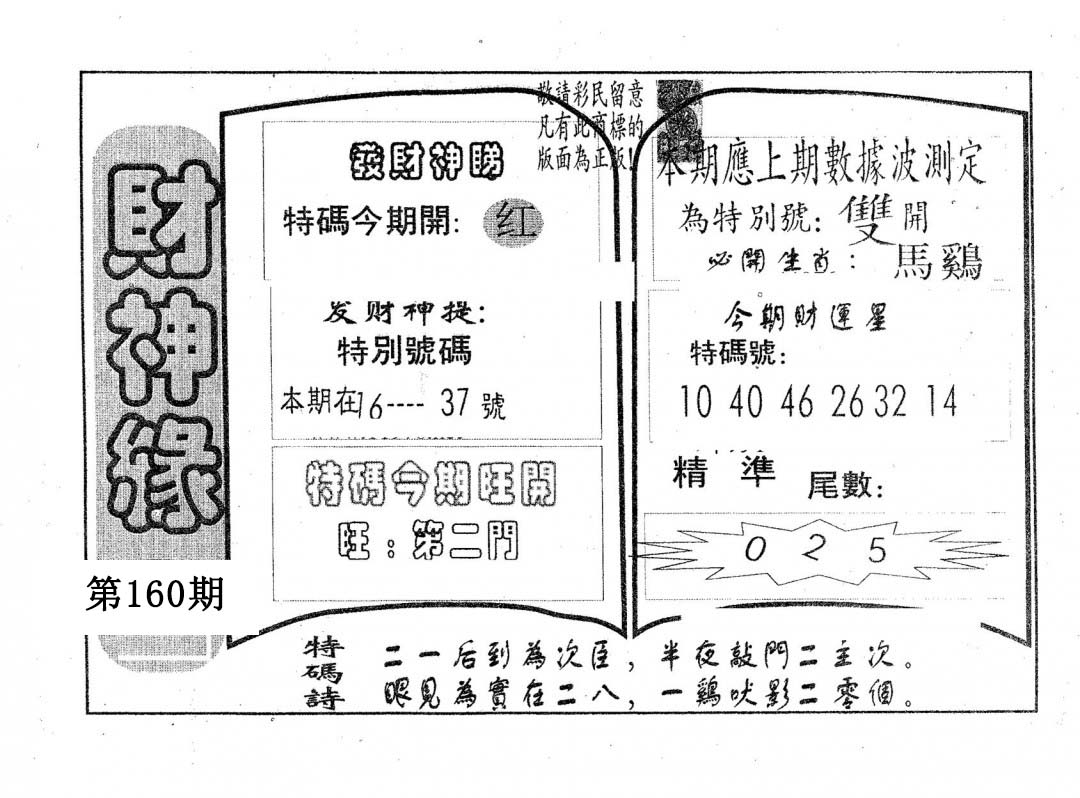 財神緣
第160期
敬請彩民留意
凡有此商標的
版面為正版!
發財神睇
特碼今期開: 红
发财神提:
特別號碼
本期在16---- 37 號
特碼今期旺開
旺:第二門
本期應上期數據波測定
為特別號: 雙開
必開生肖: 馬鷄
今期財運星
特碼號:
10 40 46 26 32 14
精準 尾數:
0 2 5
特碼詩
二一后到為次臣,半夜敲門二主次。
眼見為實在二八,一鷄吠影二零個。